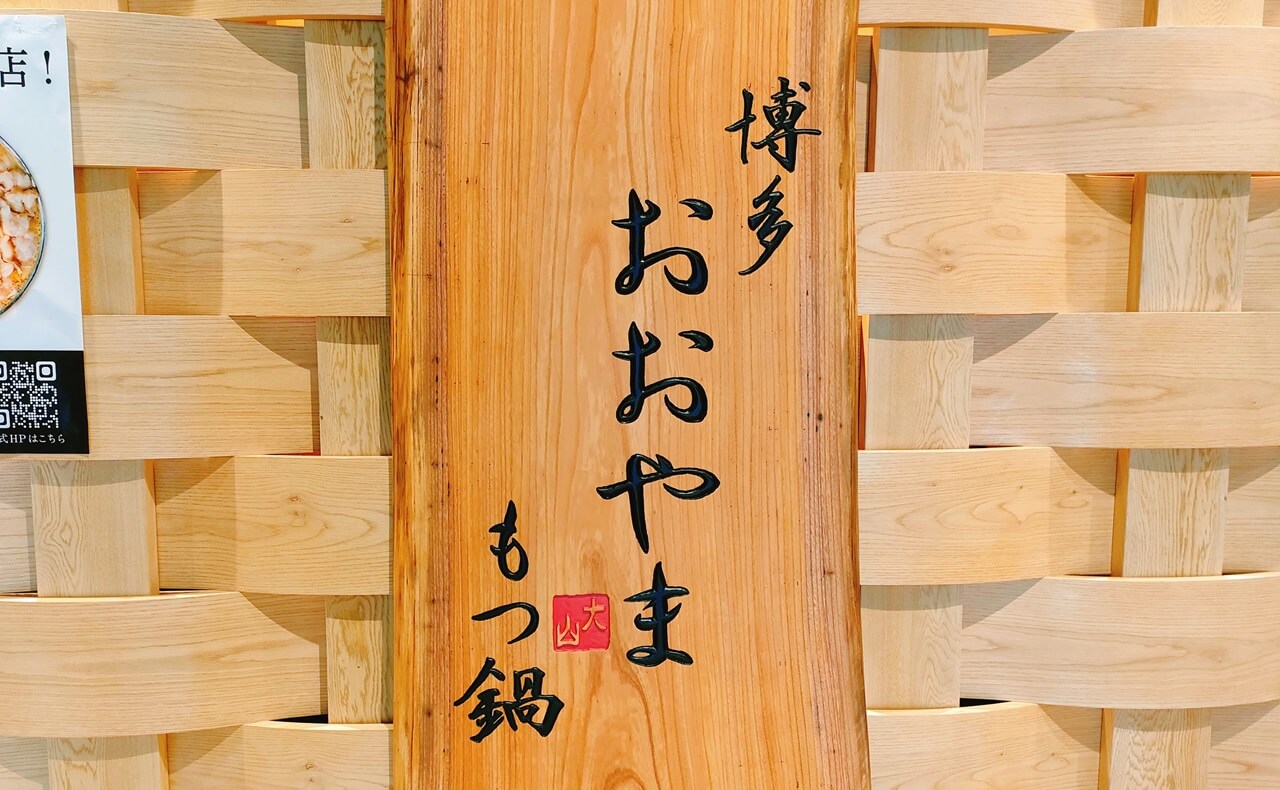 博多
おおやま
もつ鍋
大山
店！
式HPはこちら